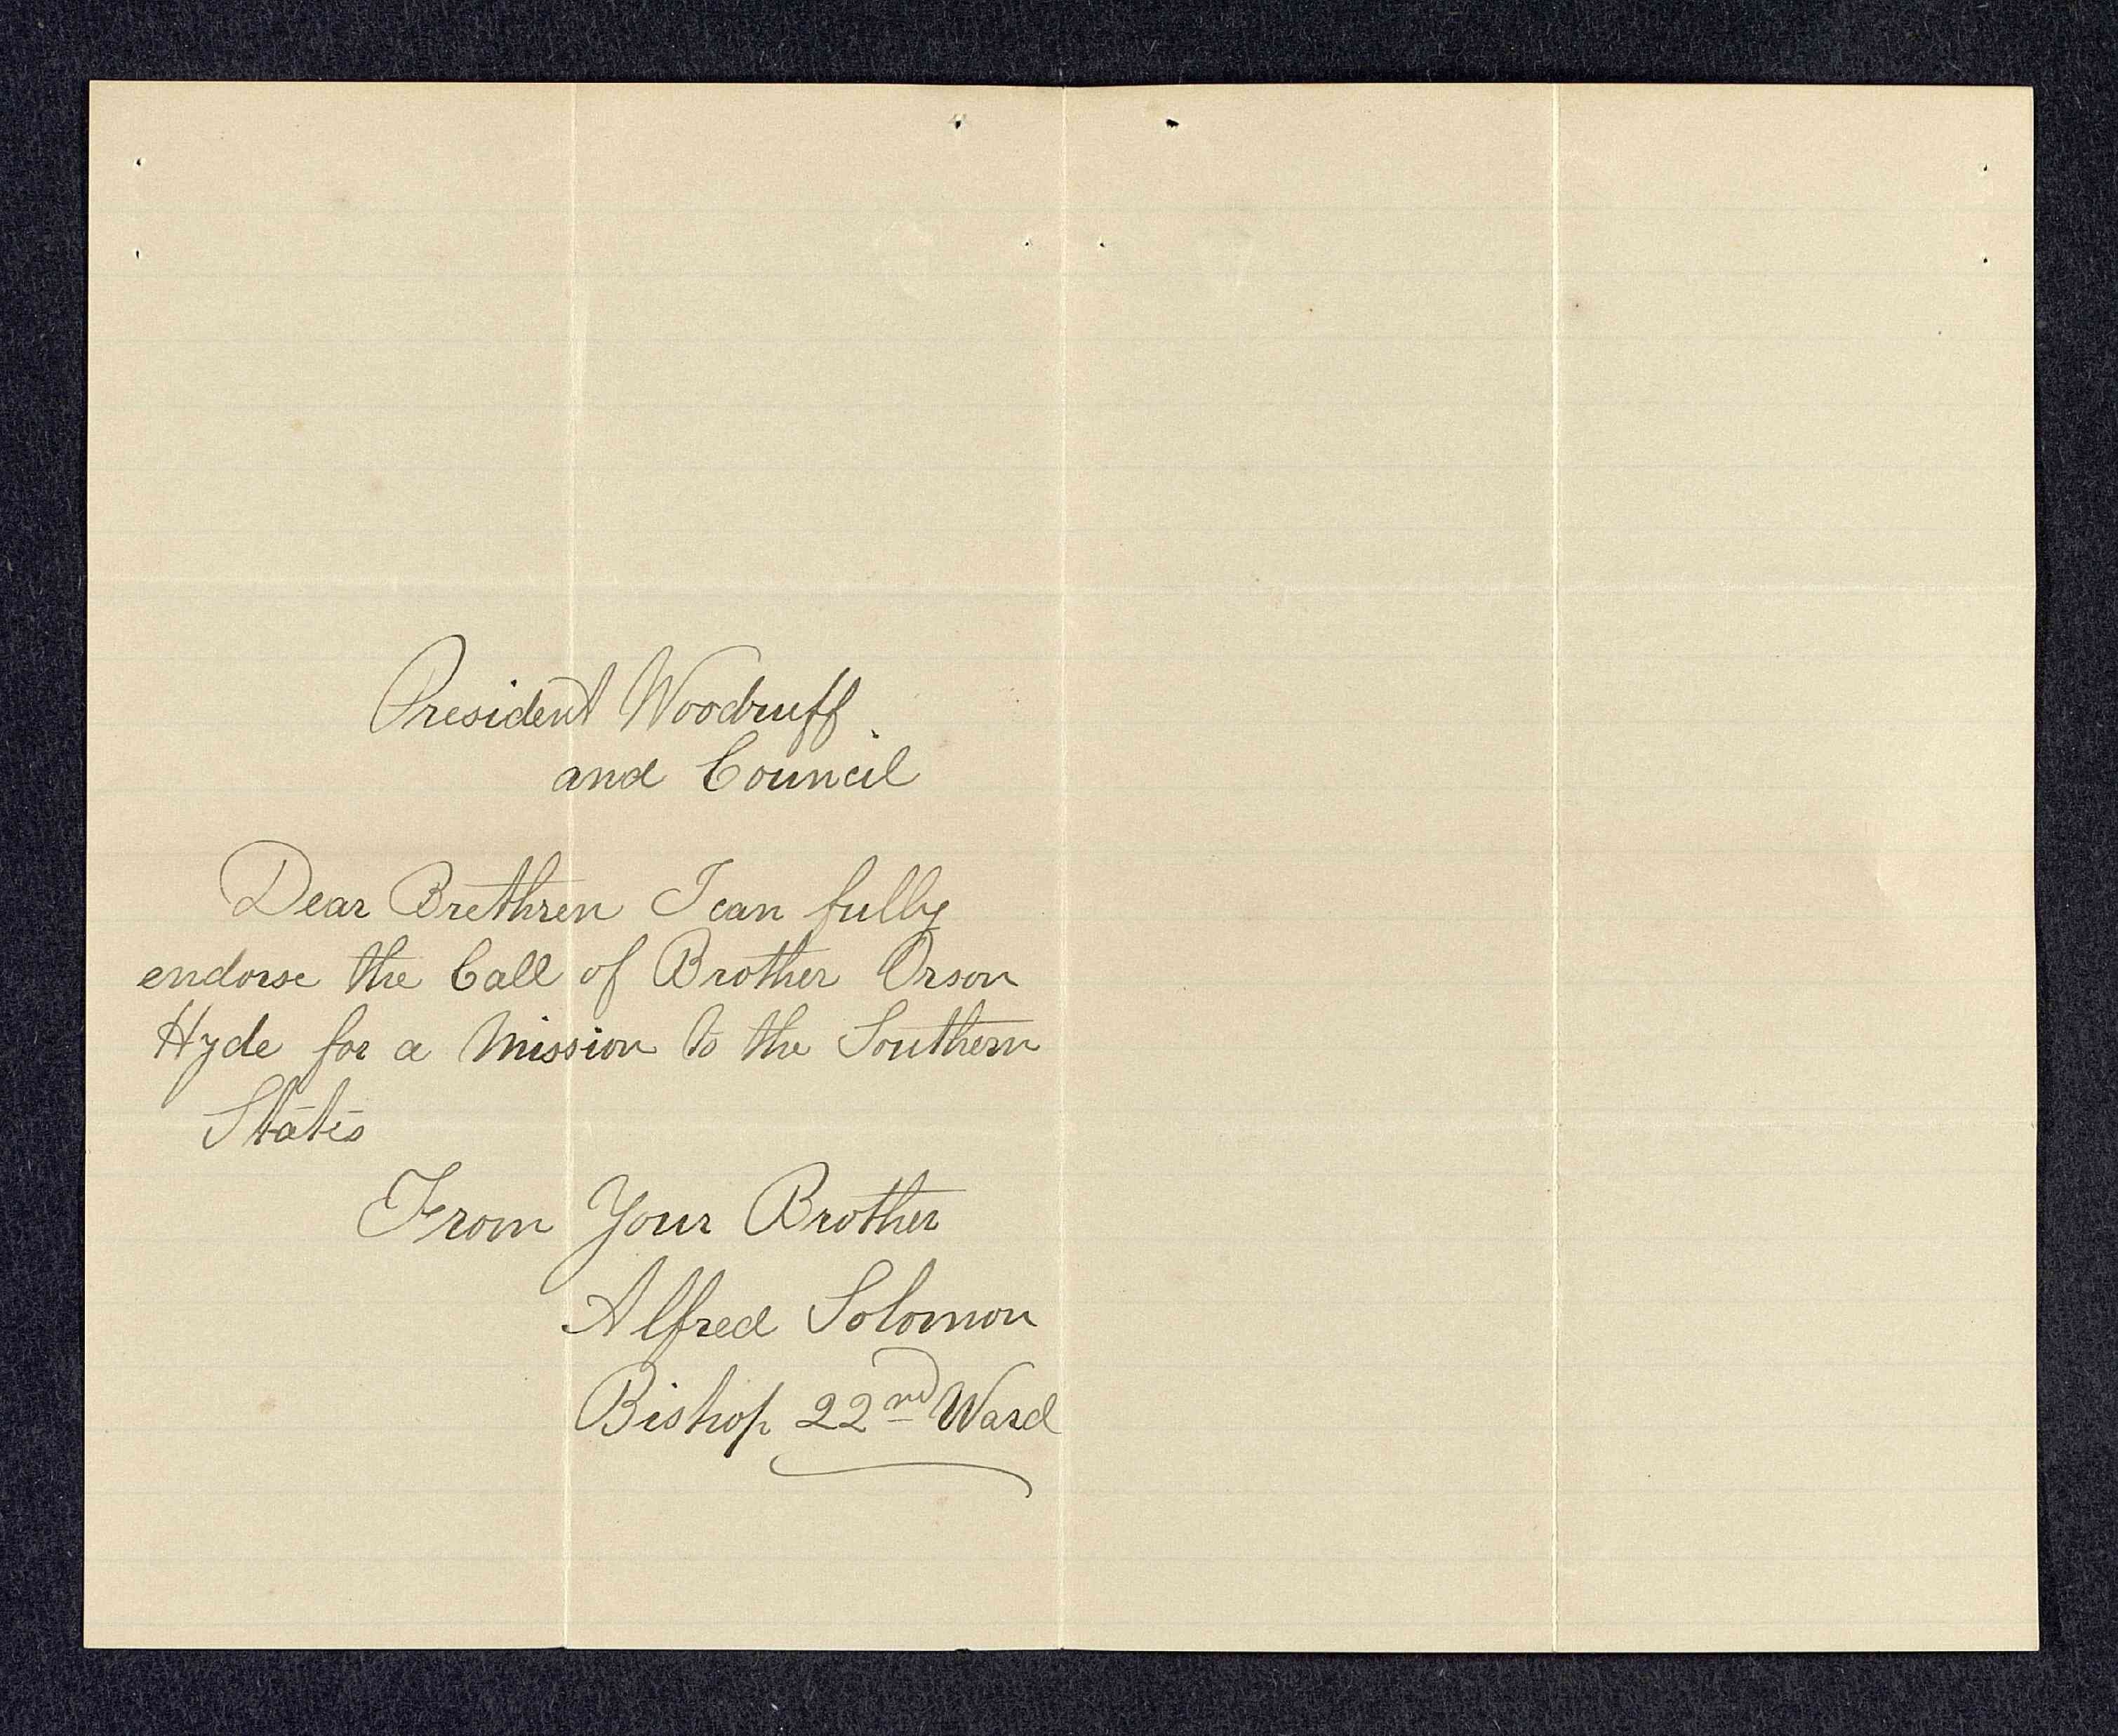 President Woodruff
and Council
Dear Brethren I can fully
endorse the Call of Brother Orson
Hyde for a Mission to the Southern
States
From Your Brother
Alfred Solomon
Bishop 22nd Ward